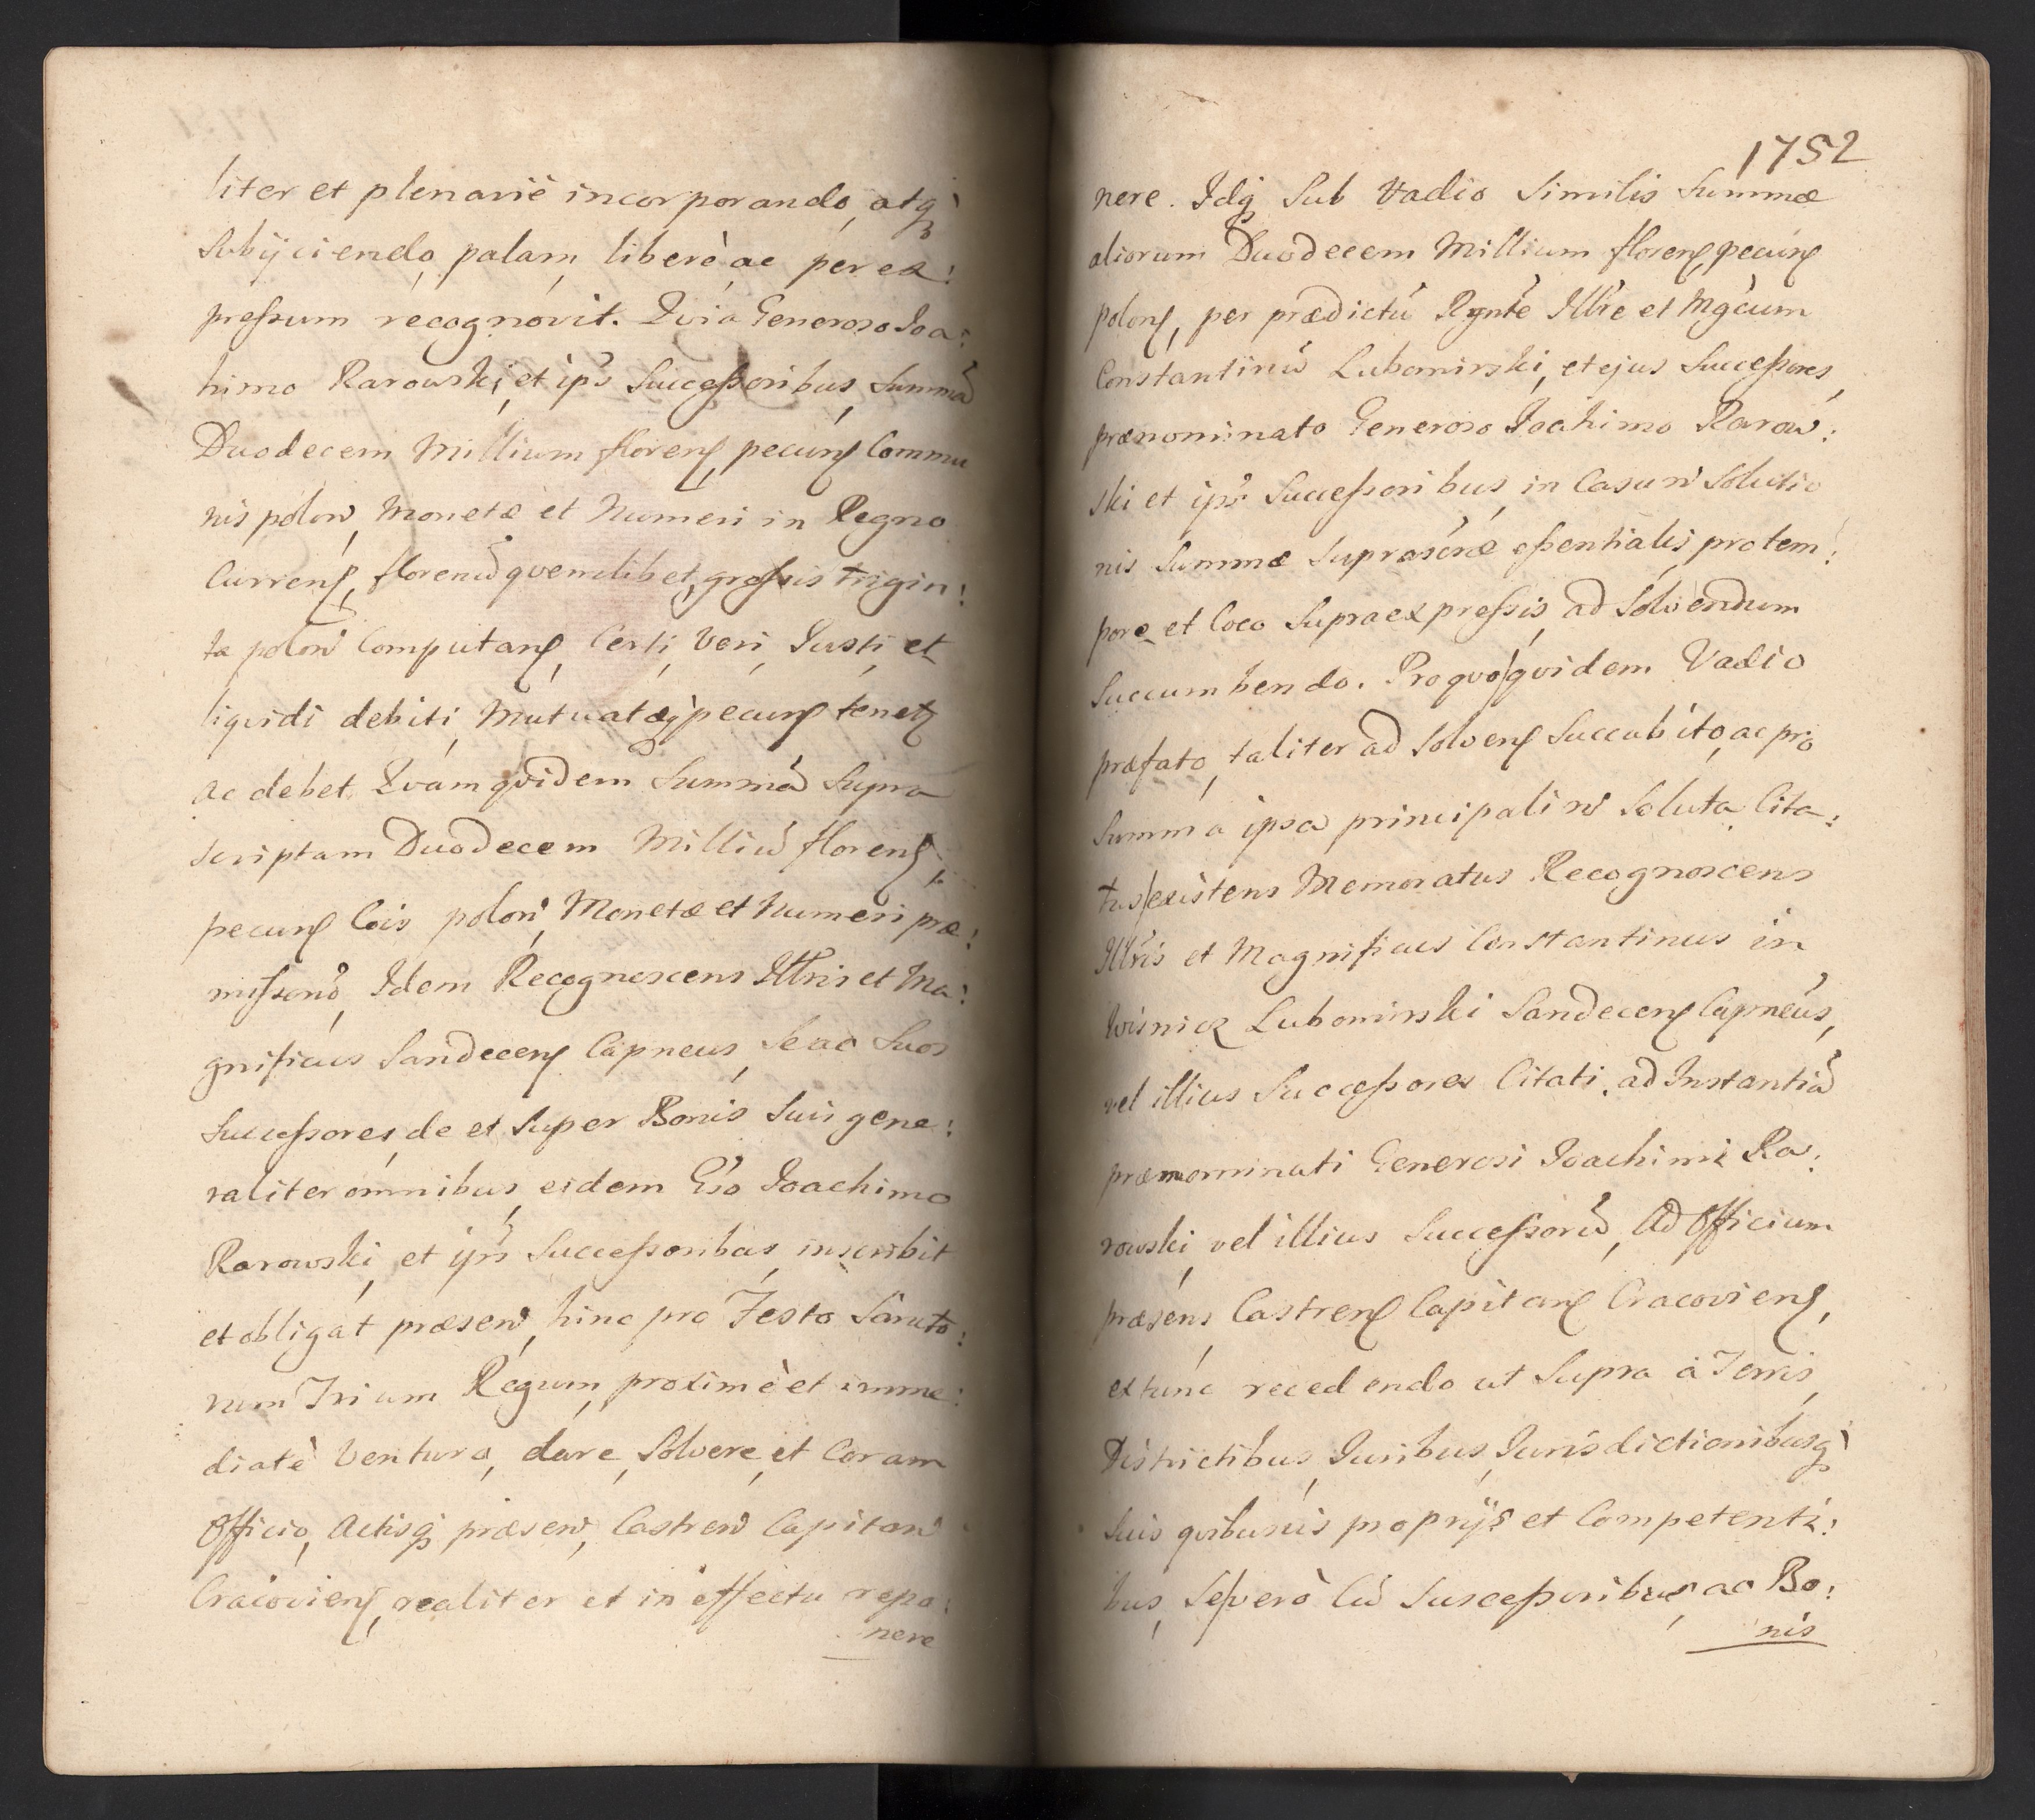 liter et plenariè incorporando, atq;
Subijciendo, palam, liberè, ac per ex:
pressum recognovit. Quia Generoso Joa:
himo Rarowski, et ips Successoribus, Summã
Duodecem Millium floren, pecun Commu
nis polon, Monetæ et Numeri in Regno
Curren, florenũ quemlibet, grossis trigin:
ta polon Computan, Certi, Veri, Justi, et
liquidi debiti, Mutuatæq; pecun tenet
ac debet. Quam quidem Summã Supra
scriptam Duodecem Milliũ floren,
pecun Cois polon, Monetæ et Numeri præ:
missorũ, Idem Recognoscens Illris et Ma:
gnificus Sandecen Capneus, Se ac Suos
Successores, de et Super Bonis Suis gene:
raliter omnibus, eidem Gso Joachimo
Rarowski, et ips Successoribus, inscribit
et obligat præsen, hinc pro Festo Sancto:
rum Trium Regum, proximè et imme:
diatè Venturo, dare, Solvere, et Coram
Officio, Actisq; præsen, Castren Capitan
Cracovien, realiter et in effectu repo:
nere
1752
nere. Idq; Sub Vadio Similis Summæ
aliorum Duodecem Millium floren, pecun
polon, per prædictũ Rgnte Illre et Mgcum
Constantinũ Lubomirski, et ejus Successores,
prænominato Generoso Joachimo Rarow:
ski et ips Successoribus, in Casum Solutio
nis Summæ Suprascræ essentialis, pro tem:
pore et Loco Supra expressis, ad Solvendum
Succumbendo. Pro quo quidem Vadio
præfato, taliter ad Solven Succubito, ac pro
Summa ipsa principali n Soluta Cita:
tus existens Memoratus Recognoscens
Illris et Magnificus Constantinus in
Wisnicz Lubomirski Sandecen Capneus,
vel illius Successores Citati, ad Instantiã
prænominati Generosi Joachimi Ra:
rowski, vel illius Successorũ, Ad Officium
præsens Castren Capitan Cracovien,
ex tunc recedendo ut Supra à Terris,
Districtibus, Juribus, Jurisdictionibusq;
Suis quibusvis proprijs et Competenti:
bus, Se vero Cũ Suscessoribus, ac Bo:
nis